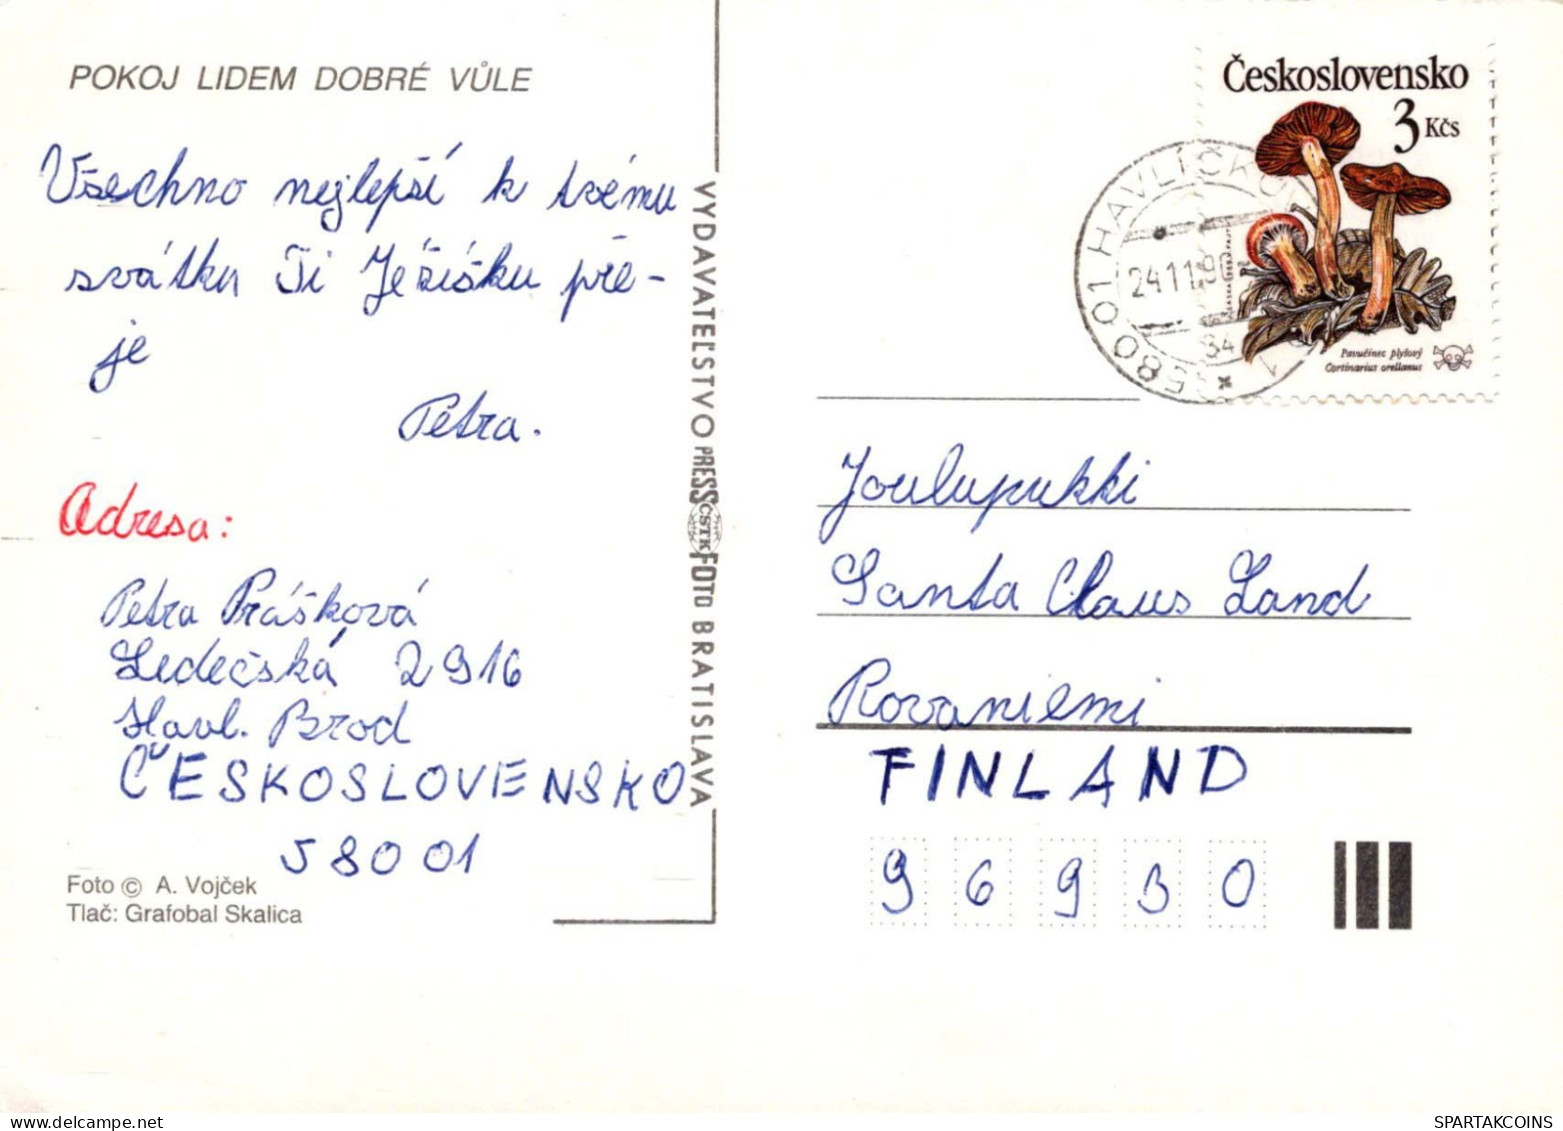 POKOJ LIDEM DOBRÉ VŮLE
Všechno nejlepší k tvému
svátku Ti Ježíšku pře-
je
Petra.
Adresa:
Petra Prášková
Ledečská 2916
Havl. Brod
ČESKOSLOVENSKO
58001
Foto © A. Vojček
Tlač: Grafobal Skalica
VYDAVATEĽSTVO PRESSFOTO BRATISLAVA
ČSTK
Československo
3 Kčs
Pavučinec plyšový
Cortinarius orellanus
580 01 HAVLÍČK
24.11.90
34
1
Joulupukki
Santa Claus Land
Rovaniemi
FINLAND
96930
SPARTAKCOINS